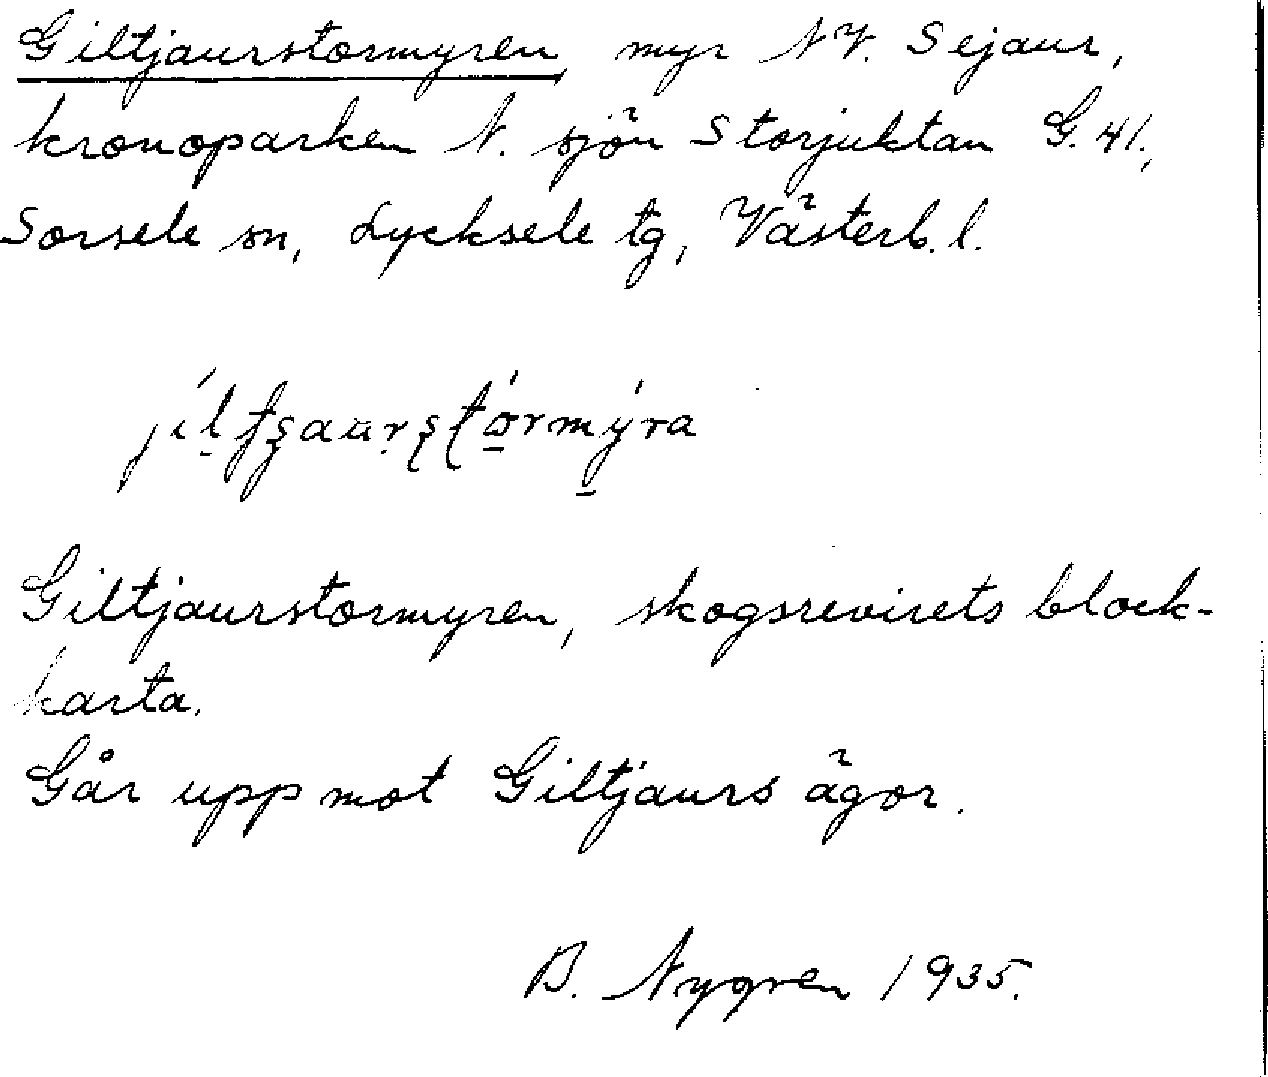 Giltjaurstormyren, myr NV. Sejaur,
kronoparken N. sjön Storjuktan G. 41.,
Sorsele sn, Lycksele tg, Västerb. l.
Giltjaurstormyren, skogsrevirets block-
karta.
Går upp mot Giltjaurs ägor.
B. Nygren 1935.